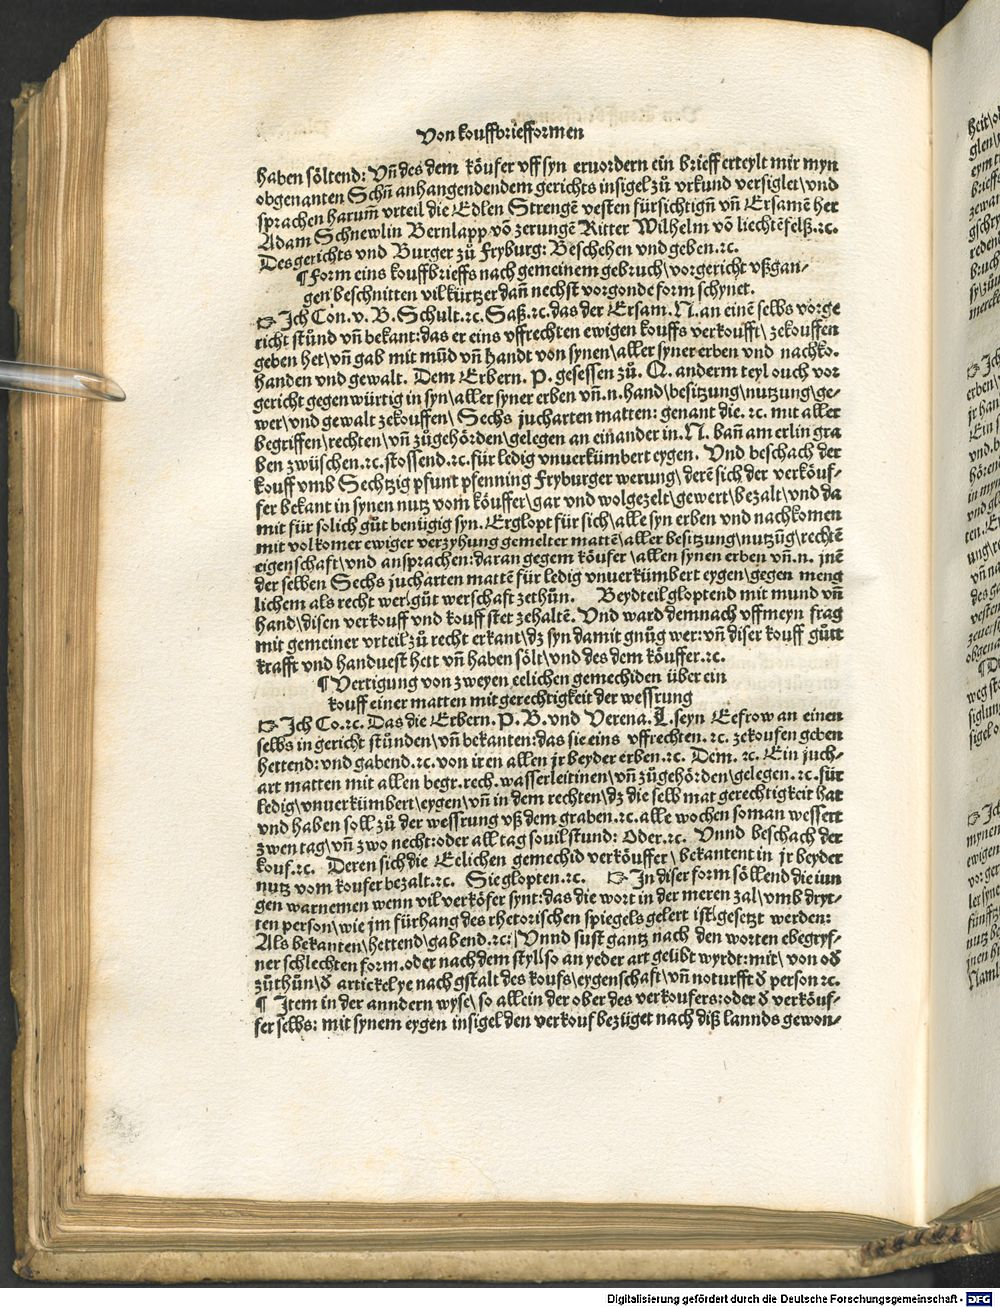 Von kouffbriefformen
haben söltend: Vñ des dem köufer vff syn eruordern ein brieff erteylt mir myn
obgenanten Schñ anhangendendem gerichts insigel zů vrkund versiglet\ vnd
sprachen harum̃ vrteil die Edlen Strengẽ vesten fürsichtigñ vñ Ersamẽ her
Adam Schnewlin Bernlapp võ zerungẽ Ritter Wilhelm võ liechtẽfelß.⁊c.
Des gerichts vnd Burger zů Fryburg: Beschehen vnd geben.⁊c.
¶ Form eins kouffbrieffs nach gemeinem gebruch\ vor gericht vßgan⸗
gen\ beschnitten vil kürtzer dañ nechst vorgonde form schynet.
☞ Jch Con. v. B. Schult. ⁊c. Saß.⁊c.das der Ersam. N. an einẽ selbs vorge
richt stůnd vñ bekant: das er eins vffrechten ewigen kouffs verkoufft\ zekouffen
geben het\ vñ gab mit mũd vñ handt von synen\ aller syner erben vnd nachko.
handen vnd gewalt. Dem Erbern. P. gesessen zů. Q. anderm teyl ouch vor
gericht gegenwürtig in syn\ aller syner erben vñ.n.hand\ besitzung\ nutzung\ ge⸗
wer\ vnd gewalt zekouffen\ Sechs jucharten matten: genant die. ⁊c. mit aller
begriffen\ rechten\ vñ zůgehörden\ gelegen an einander in. N. bañ am erlin gra
ben zwüschen.⁊c. stossend.⁊c. für ledig vnuerkümbert eygen. Vnd beschach der
kouff vmb Sechtzig pfunt pfenning Fryburger werung\ derẽ sich der verköuf⸗
fer bekant in synen nutz vom köuffer\ gar vnd wolgezelt\ gewert\ bezalt\ vnd da
mit für solich gůt benügig syn. Er glopt für sich\ alle syn erben vnd nachkomen
mit volkomer ewiger verzyhung gemelter mattẽ\ aller besitzung\ nutzũg\ rechtẽ
eigenschaft\ vnd ansprachen: daran gegem köufer\ allen synen erben vñ.n. jnẽ
der selben Sechs jucharten mattẽ für ledig vnuerkümbert eygen\ gegen meng
lichem als recht wer\ gůt werschaft zethůn. Beyd teil gloptend mit mund vñ
hand\ disen verkouff vnd kouff stet zehaltẽ. Vnd ward demnach vff meyn frag
mit gemeiner vrteil zů recht erkant\ dz syn damit gnůg wer: vñ diser kouff gůtt
krafft vnd handuest hett vñ haben sölt\ vnd des dem köuffer.⁊c.
¶ Vertigung von zweyen eelichen gemechiden über ein
kouff einer matten mit gerechtigkeit der wessrung
☞ Jch Co.⁊c. Das die Erbern. P. B. vnd Verena. L. seyn Eefrow an einen
selbs in gericht stůnden\ vñ bekanten: das sie eins vffrechten. ⁊c. zekoufen geben
hettend: vnd gabend.⁊c. von iren allen jr beyder erben.⁊c. Dem. ⁊c. Ein juch⸗
art matten mit allen begr.rech.wasserleitinen\ vñ zůgehörden\ gelegen. ⁊c. für
ledig\ vnuerkümbert\ eygen\ vñ in dem rechten\ dz die selb mat gerechtigkeit hat
vnd haben soll zů der wessrung vß dem graben.⁊c. alle wochen so man wessert
zwen tag\ vñ zwo necht: oder all tag souil stund: Oder.⁊c. Vnnd beschach der
kouf.⁊c. Deren sich die Eelichen gemechid verköuffer\ bekantent in jr beyder
nutz vom koufer bezalt.⁊c. Sie glopten.⁊c. ☞ Jn diser form söllend die iun
gen warnemen wenn vil verköfer synt: das die wort in der meren zal\ vmb dryt⸗
ten person\ wie jm fürhang des rhetorischen spiegels gelert ist\ gesetzt werden:
Als bekanten\ hettend\ gabend.⁊c:\ Vnnd sust gantz nach den worten ebegryf⸗
ner schlechten form. oder nach dem styl\ so an yeder art geübt wyrdt: mit\ von oð
zůthůn\ ð artickel ye nach gstalt des koufs\ eygenschaft\ vñ noturfft ð person ⁊c.
¶ Jtem in der anndern wyse\ so allein der ober des verkoufers: oder ð verköuf⸗
fer selbs: mit synem eygen insigel den verkouf bezüget nach diß lannds gewon⸗
Digitalisierung gefördert durch die Deutsche Forschungsgemeinschaft - DFG